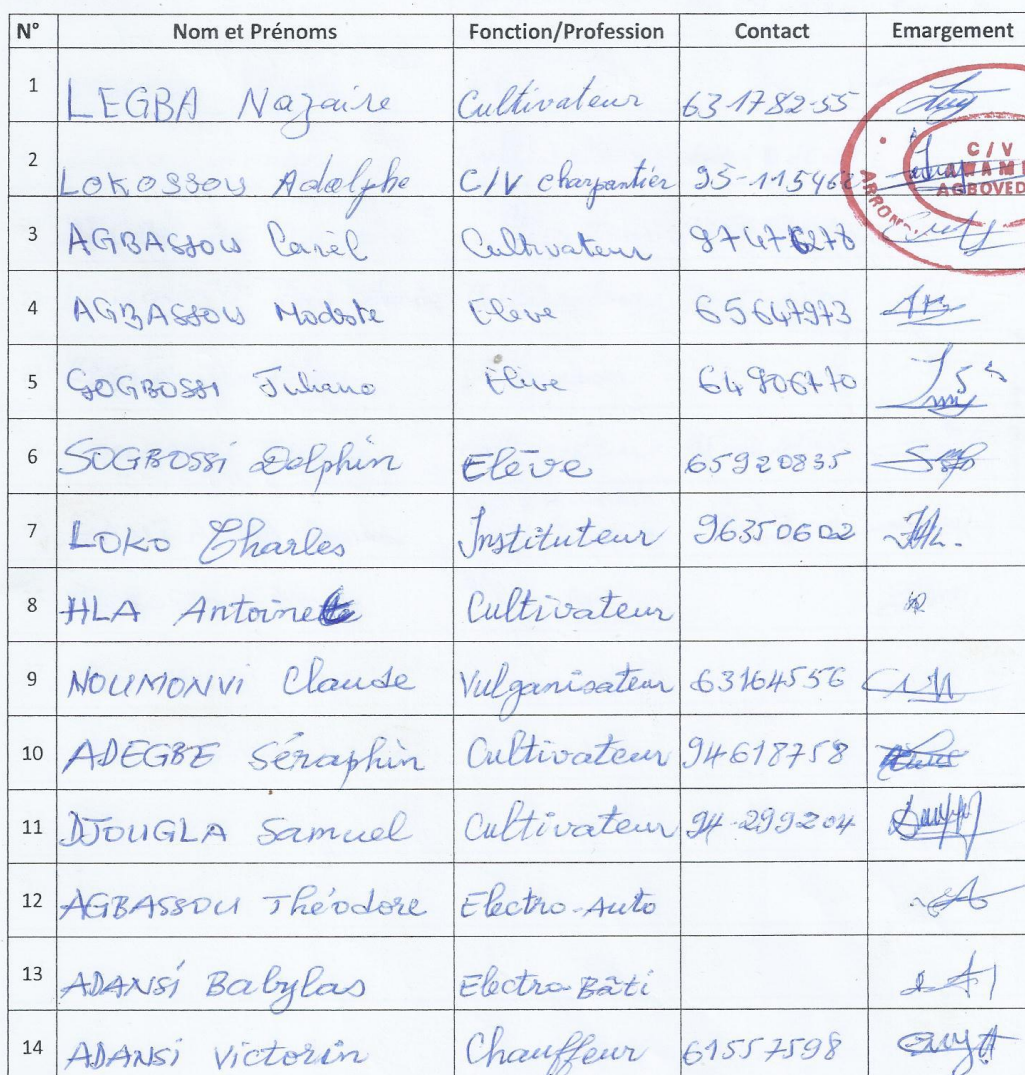 N° Nom et Prénoms Fonction/Profession Contact Emargement
1 LEGBA Nazaire Cultivateur 63-1782-55
2 LOKOSSOU Adolphe C/V charpantier 95-115462
3 AGBASSOU Carèl Cultivateur
4 AGBASSOU Modoste Elève 65647973
5 GOGBOSSI Juliano Elève 64906770
6 SOGBOSSI Delphin Elève 65920835
7 LOKO Charles Instituteur 96350602
8 HLA Antoinette Cultivateur
9 NOUMONVI Claude Vulganisateur 63164556
10 ADEGBE Séraphin Cultivateur 94618758
11 DJOUGLA Samuel Cultivateur 94-299204
12 AGBASSOU Théodore Electro-Auto
13 ADANSI Babylas Electro-Bâti
14 ADANSI Victorin Chauffeur 61557598
C/V
AGBOVED
ARRON